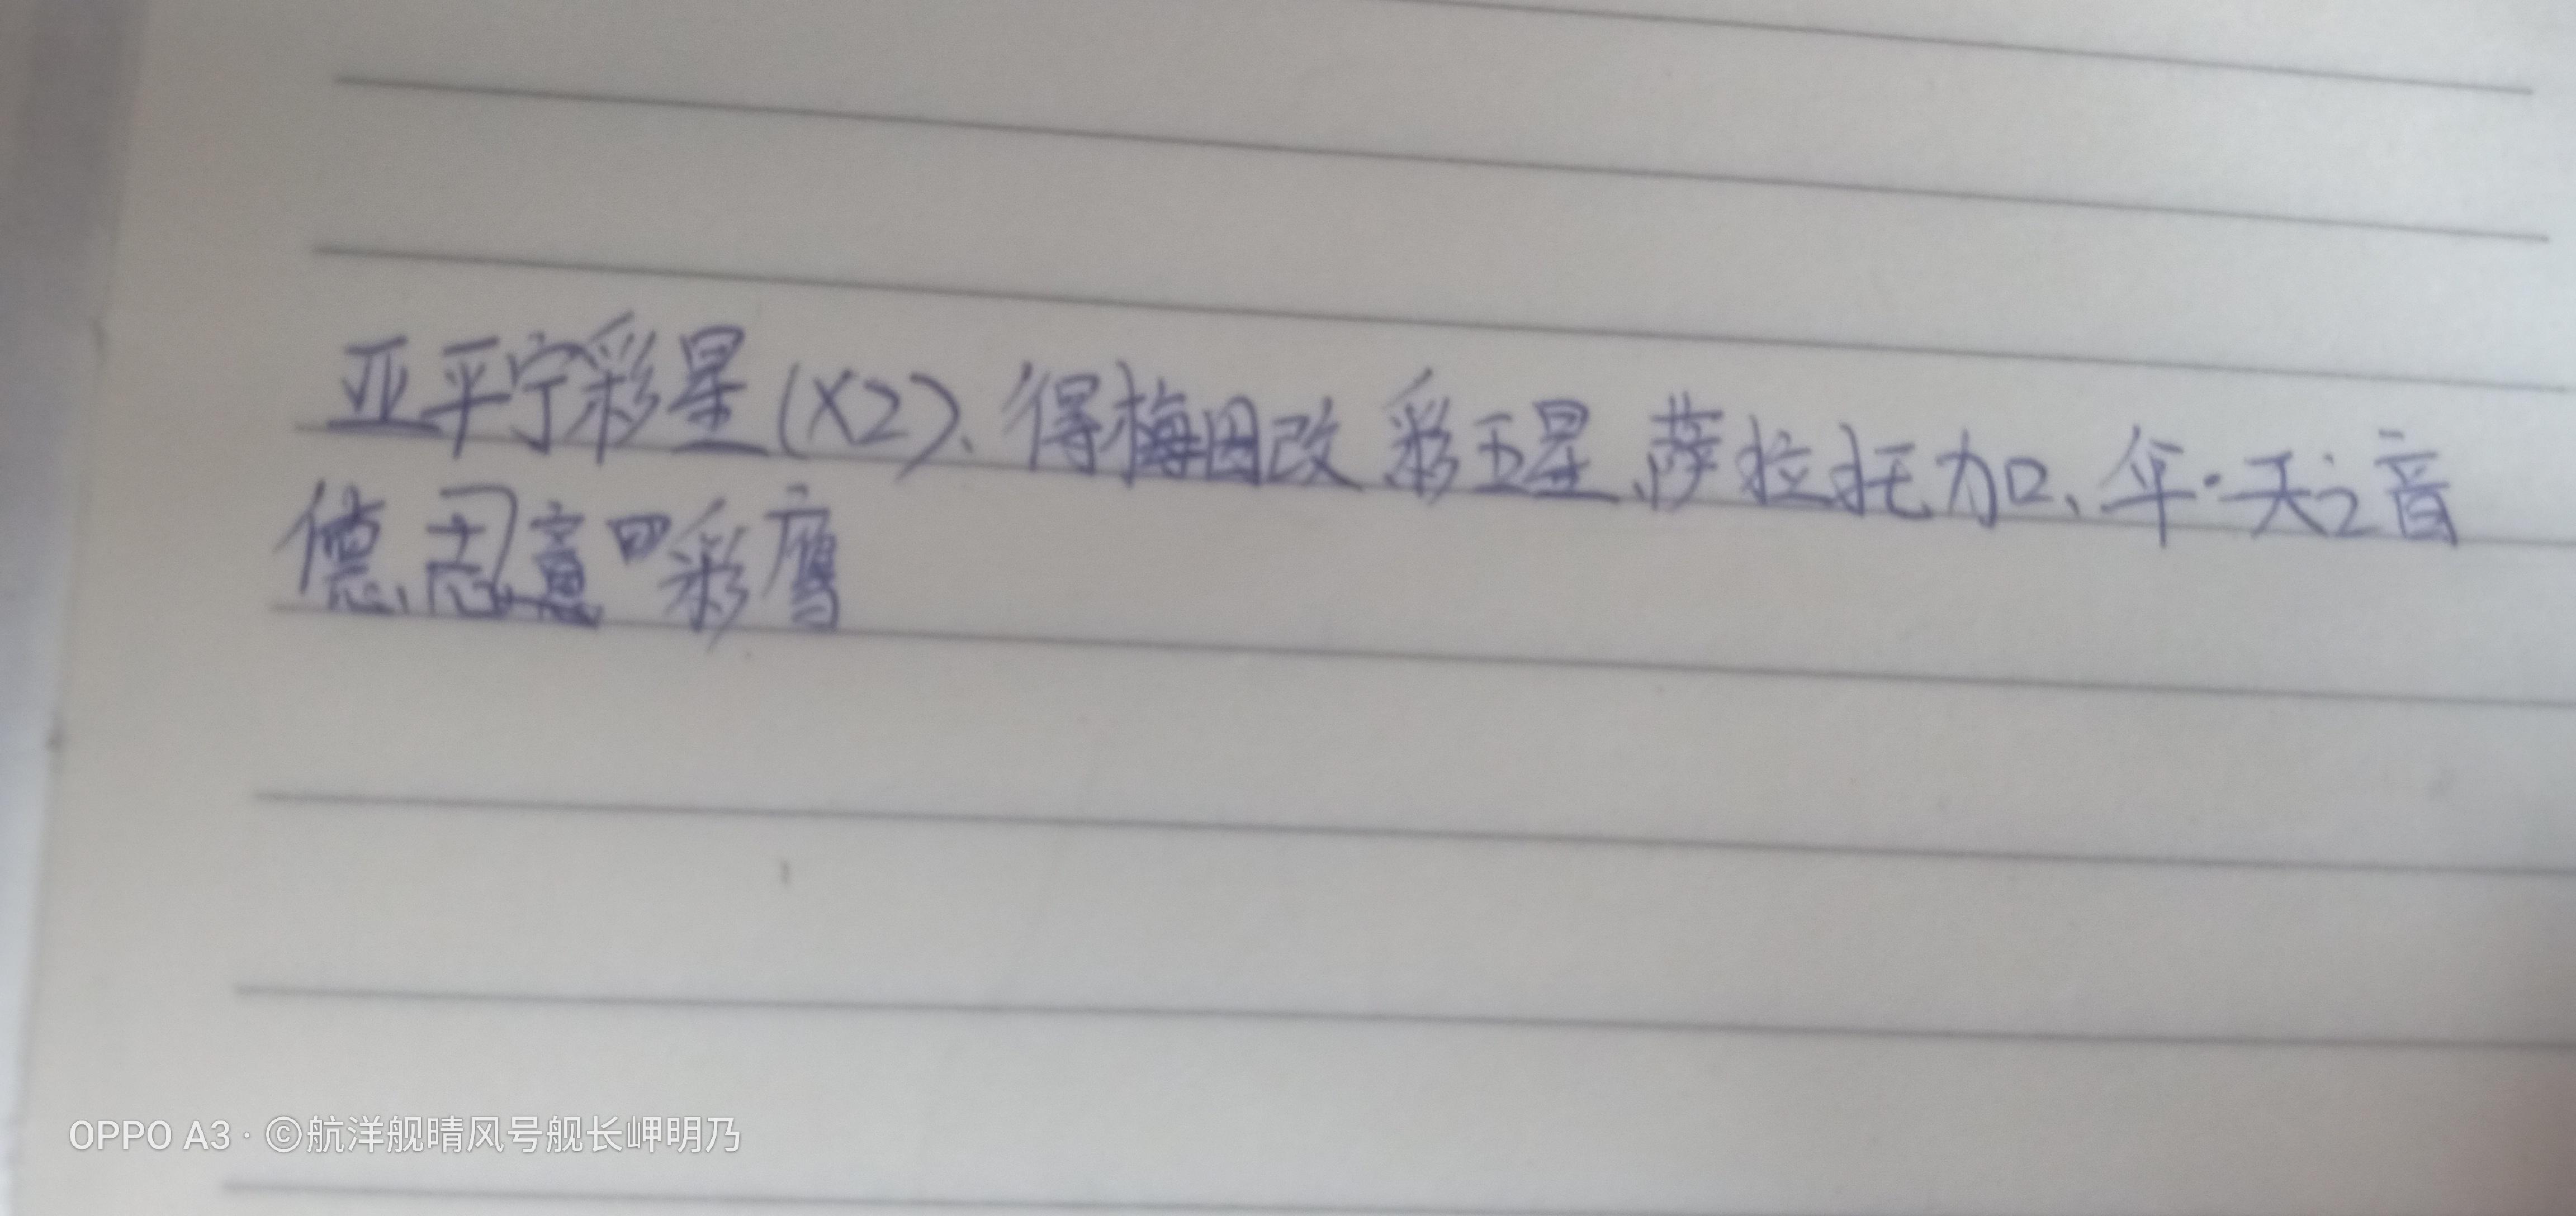 亚平宁彩星(X2)、得梅因改彩五星、萨拉托加、伞·天之音
德、恩、意四彩鹰
OPPO A3 · ©航洋舰晴风号舰长岬明乃